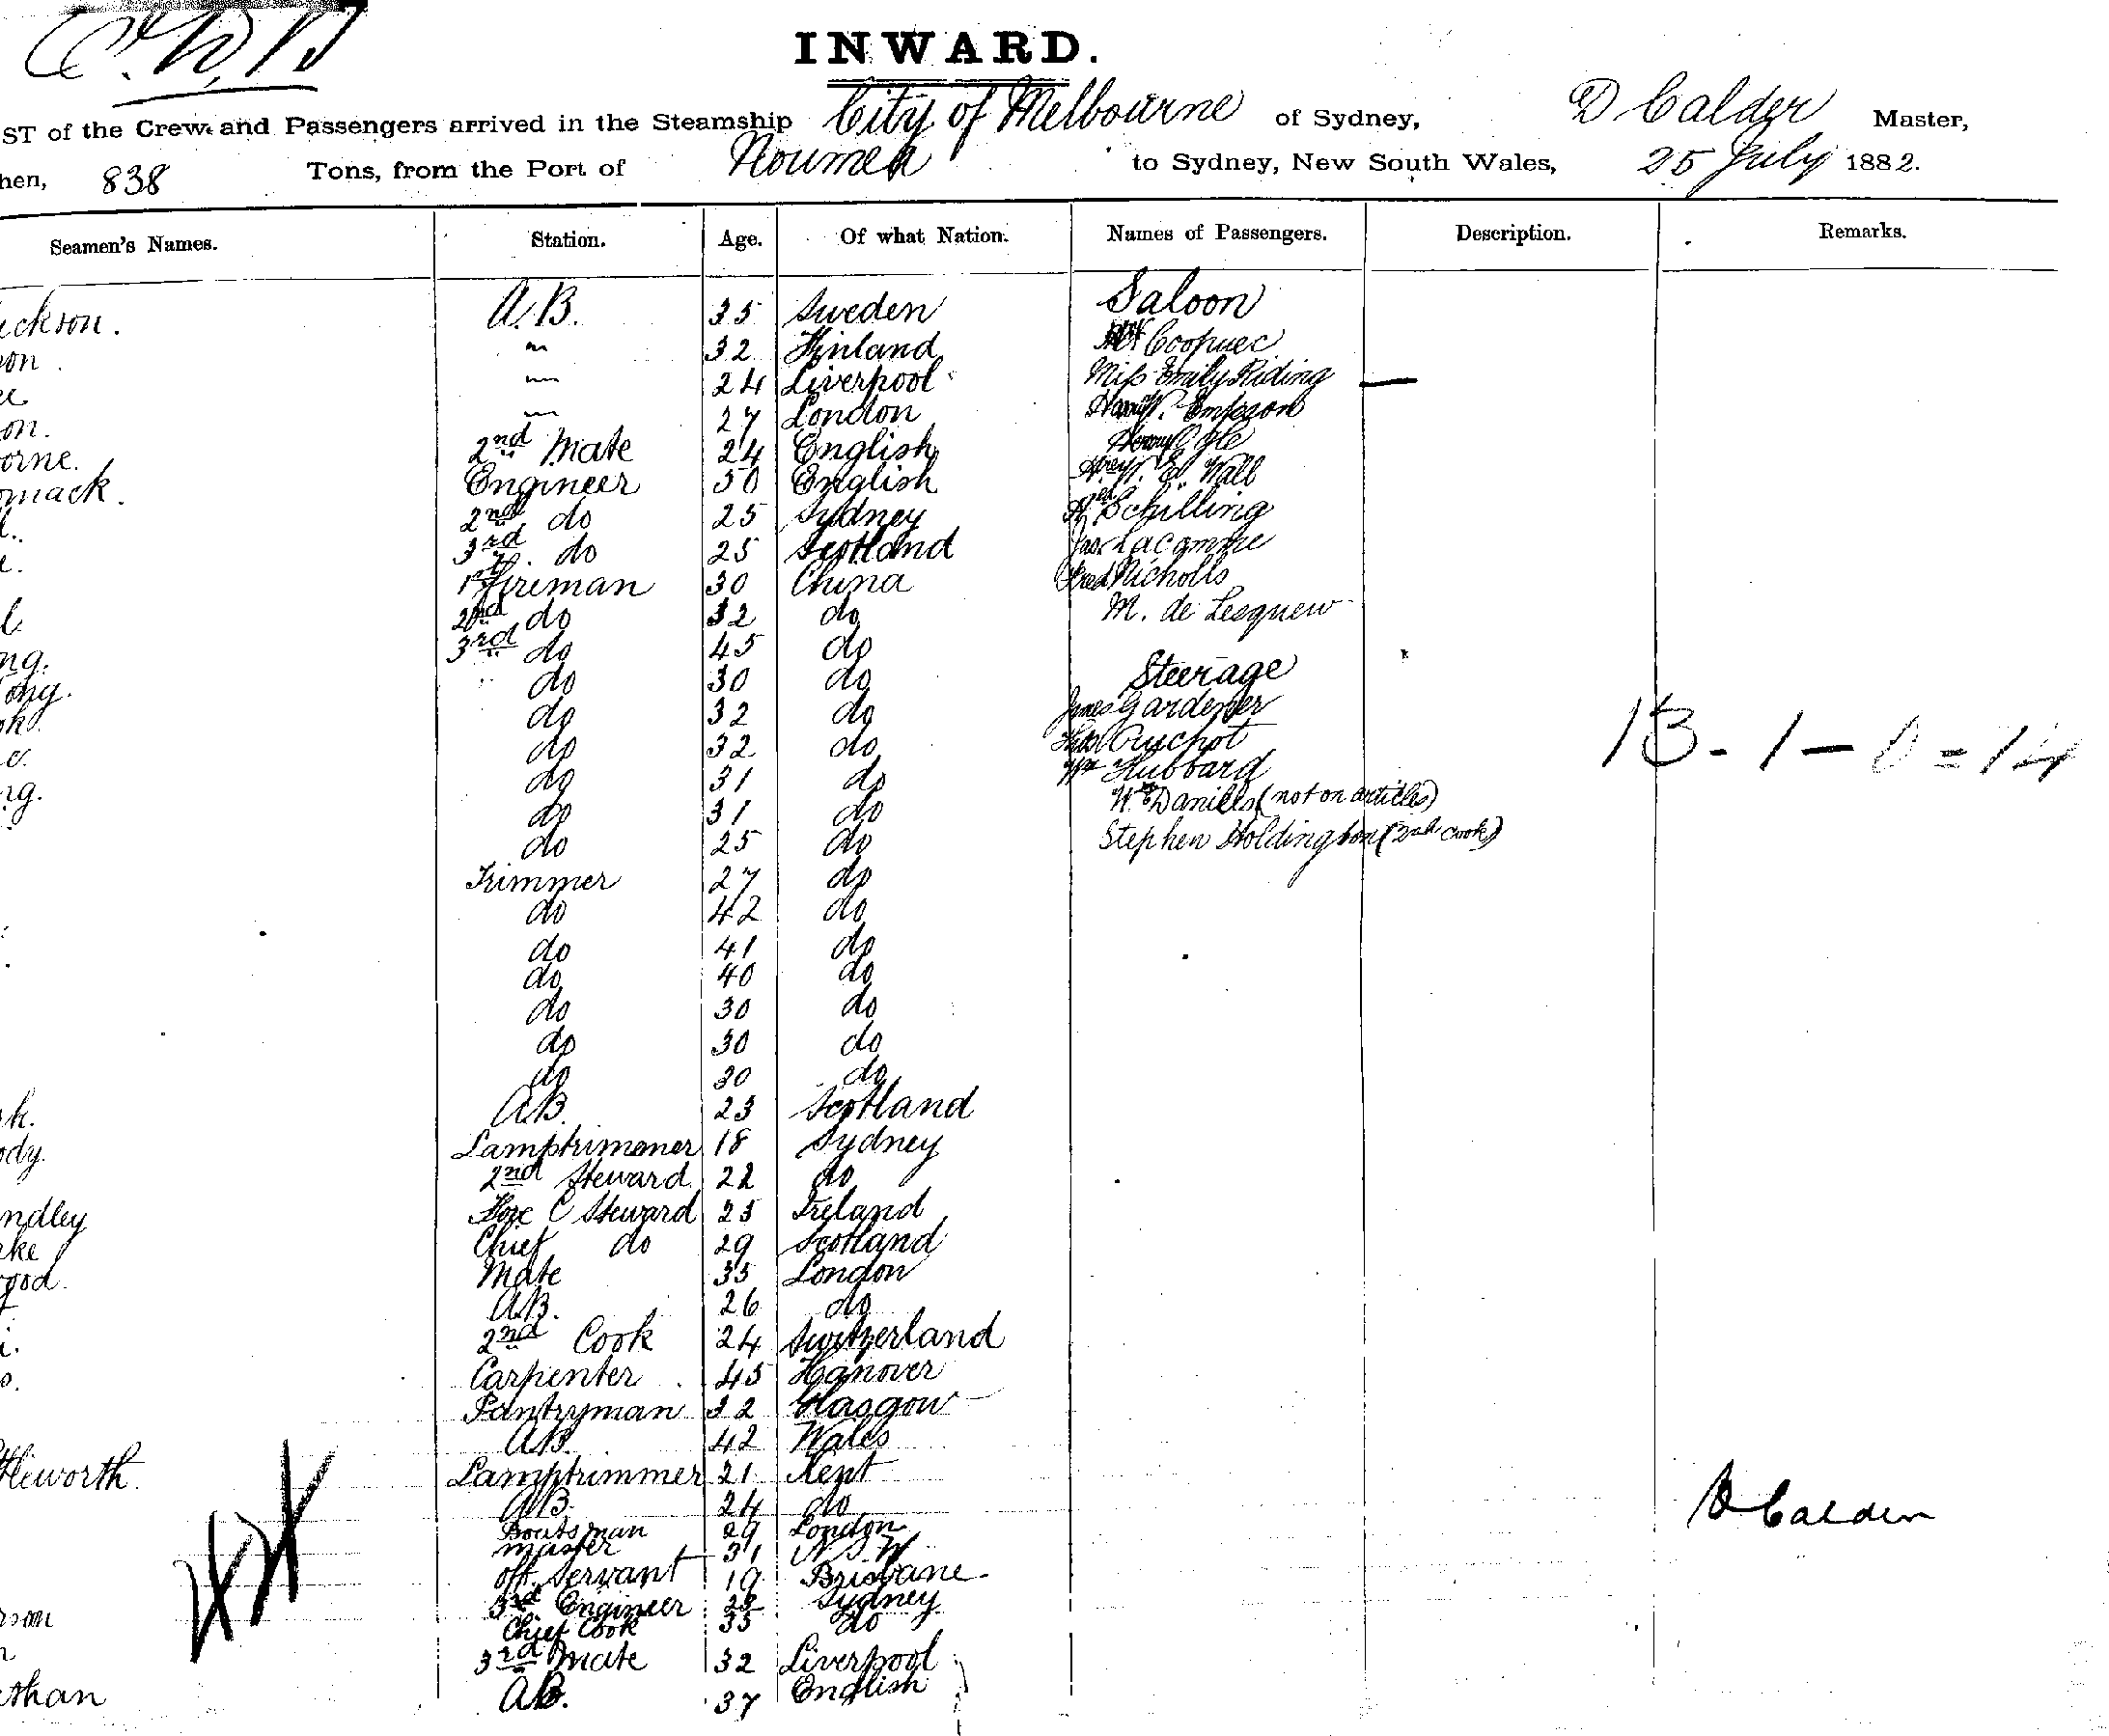 INWARD.
ST of the Crew and Passengers arrived in the Steamship City of Melbourne of Sydney, D Calder Master,
hen, 838 Tons, from the Port of Noumea to Sydney, New South Wales, 25 July 1882.
Seamen's Names. Station. Age. Of what Nation. Names of Passengers. Description. Remarks.
ickson. A.B. 35 Sweden Saloon
on. " 32 Finland
" 24 Liverpool Miss Emily Riding —
on. " 27 London Empson
orne. 2nd Mate 24 English Henry Ogle
omack. Engineer 50 English W. E. Wall
2nd do 25 Sydney Schilling
3rd do 25 Scotland Lacomme
1st Fireman 30 China Fred Nicholls
2nd do 32 do M. de Lesquew
ng. 3rd do 45 do
ong. do 30 do Steerage
ok. do 32 do James Gardener
do 32 do
ng. do 31 do Wm Hubbard
do 31 do Wm Daniells (not on articles)
do 25 do Stephen Holdington (2nd cook)
13 - 1 - 0 = 14
Trimmer 27 do
do 42 do
do 41 do
do 40 do
do 30 do
do 30 do
do 30 do
k. A.B. 23 Scotland
ody. Lamptrimmer 18 Sydney
2nd Steward 22 do
ndley Fore C Steward 25 Ireland
rke Chief do 29 Scotland
ood. Mate 35 London
A.B. 26 do
i. 2nd Cook 24 Switzerland
o. Carpenter 45 Hanover
Pantryman 32 Glasgow
A.B. 42 Wales
tleworth. Lamptrimmer 21 Kent
A.B. 24 do
Boatsman 29 London
master 31 N S W
off. Servant 19 Brisbane
rson 3rd Engineer 28 Sydney
Chief Cook 35 do
n 3rd Mate 32 Liverpool
athan A.B. 37 English
D Calder